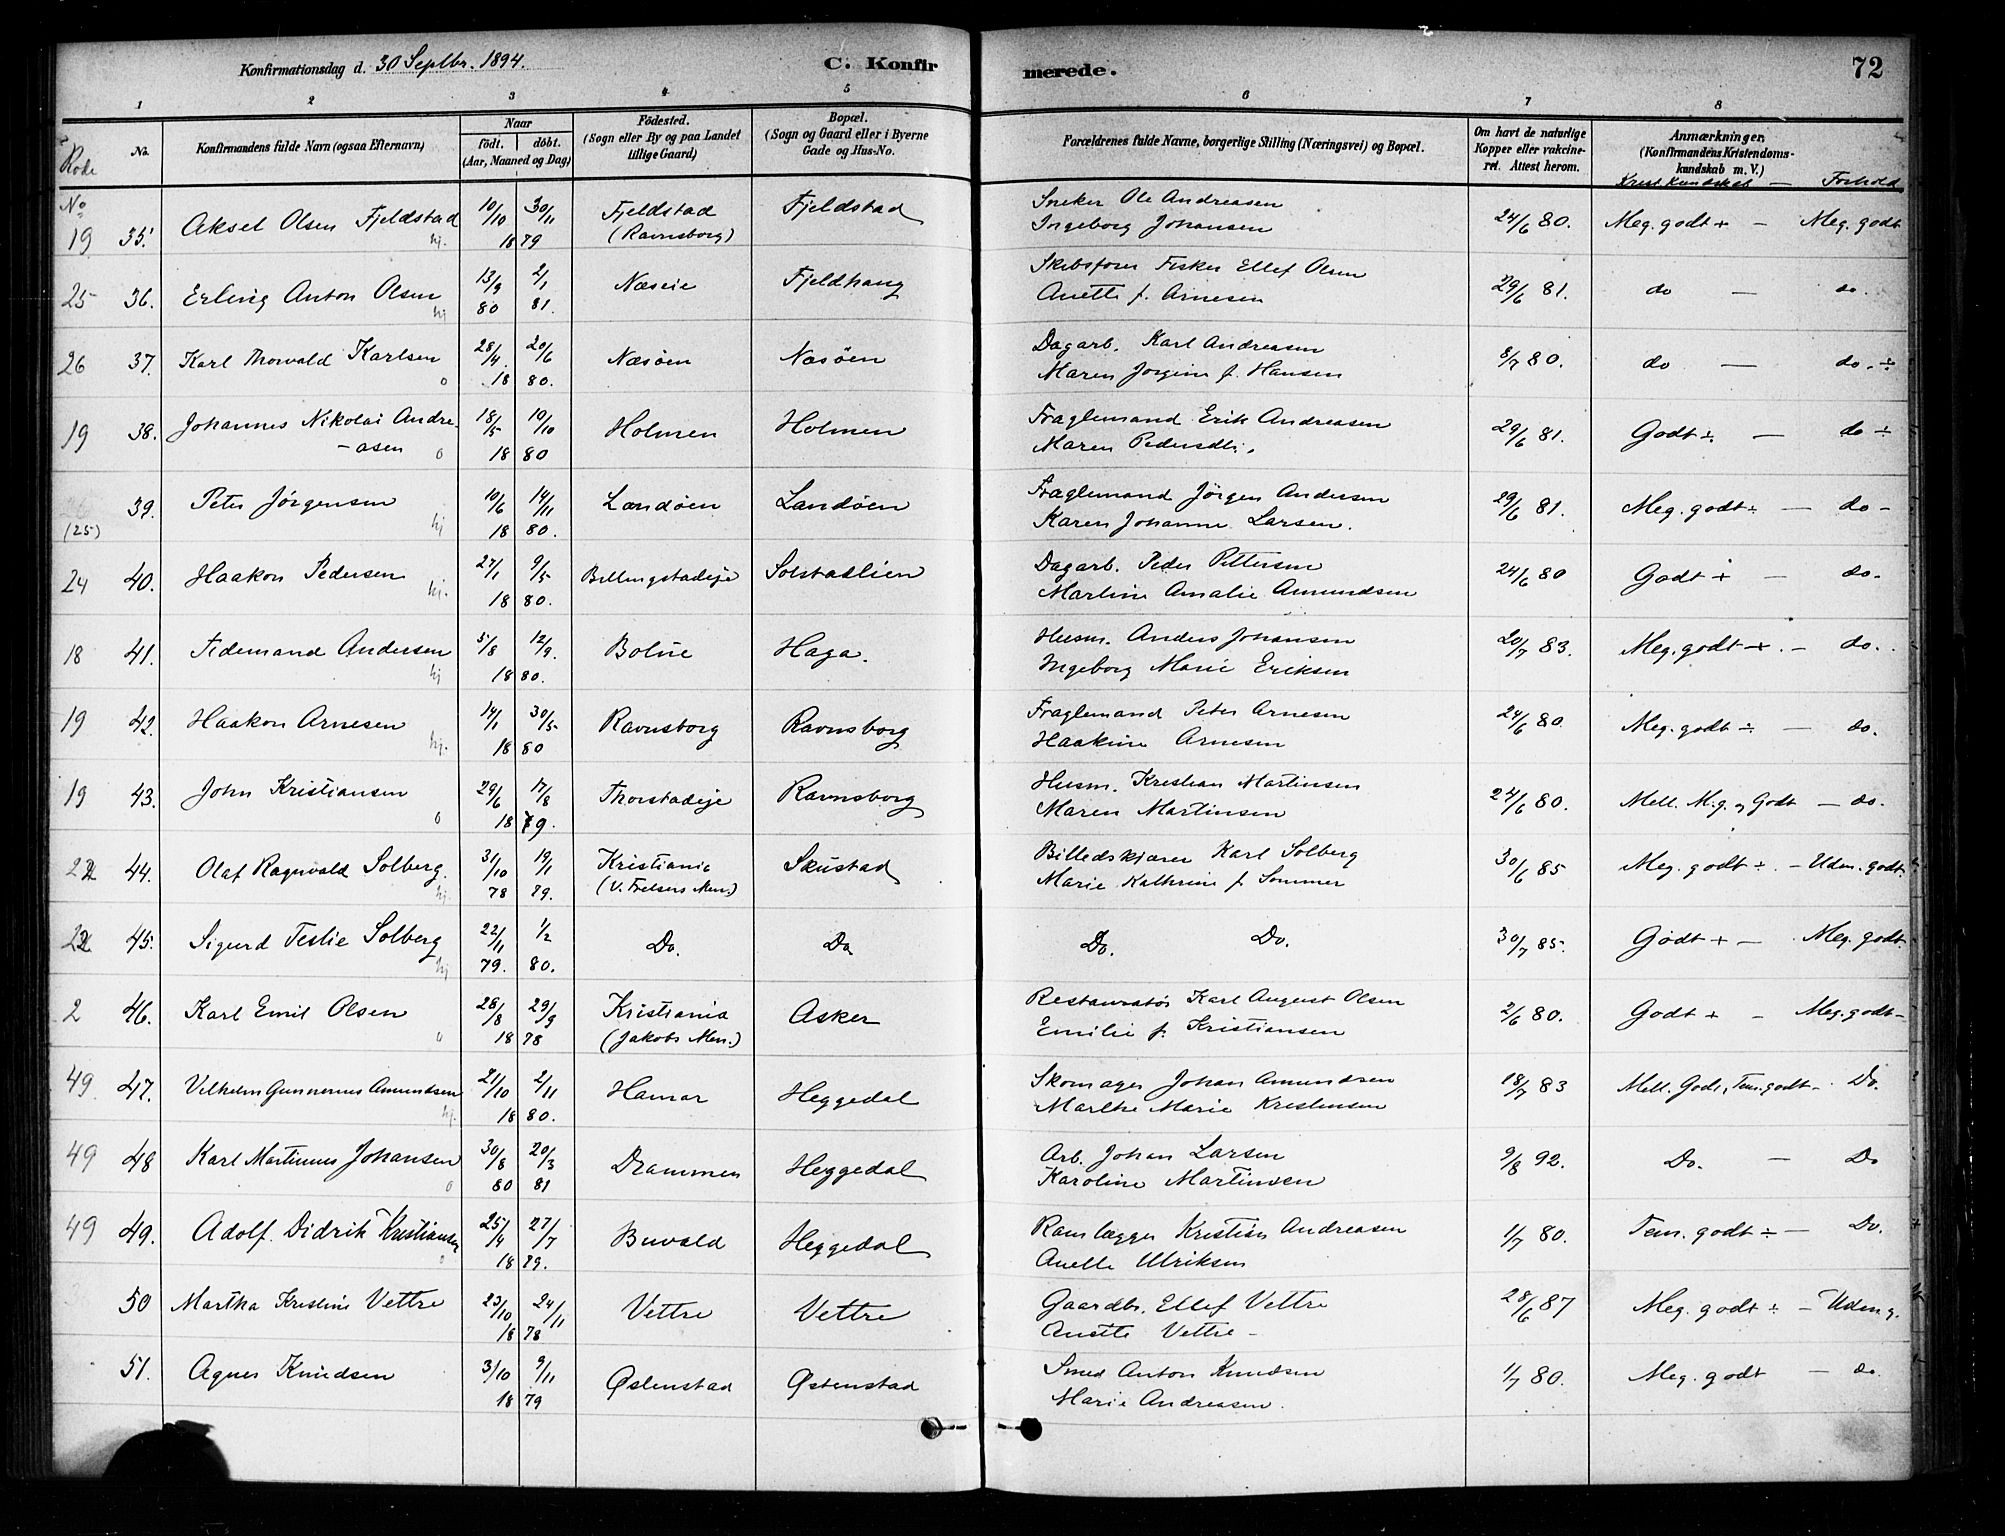 Konfirmationsdag d. 30 Septbr. 1894.
C. Konfir
merede.
72
1 2 3 4 5 6 7 8
Rode
No.
Konfirmandens fulde Navn (ogsaa Efternavn)
Naar
födt. döbt.
(Aar, Maaned og Dag)
Födested.
(Sogn eller By og paa Landet
tillige Gaard)
Bopæl.
(Sogn og Gaard eller i Byerne
Gade og Hus-No.
Forældrenes fulde Navne, borgerlige Stilling (Næringsvei) og Bopæl.
Om havt de naturlige
Kopper eller vakcine-
ret. Attest herom.
Anmærkninger.
(Konfirmandens Kristendoms-
kundskab m. V.)
Krist. kundskab — Forhold
No
19 35. Aksel Olsen Fjeldstad hj. 10/10 30/11 1879 Fjeldstad (Ravnsborg) Fjeldstad
Sneker Ole Andreasen
Ingeborg Johansen
24/6 80. Meg. godt + — Meg. godt
25 36. Erling Anton Olsen hj 13/9 80 2/1 81. Næseie Fjeldhaug
Skibsfører Fisker Ellef Olsen
Anette f. Arnesen
29/6 81. do — do.
26 37. Karl Thorvald Karlsen o 28/4. 20/6 1880. Næsöen Næsöen
Dagarb. Karl Andreasen
Maren Jörgine f. Hansen
8/7 80. do — do. ÷
19 38. Johannes Nikolai Andre-
-asen o 18/5 10/10 1880 Holmen Holmen
Fraglemand Erik Andreasen
Maren Pedersdtr.
29/6 81. Godt ÷ — do ÷
(25) 39. Peter Jörgensen hj 10/6 14/11 1880. Landöen Landöen
Fraglemand Jörgen Andersen
Karen Johanne Larsen.
29/6 81. Meg. godt ÷ — do -
24 40. Haakon Pedersen hj. 27/1 9/5 1880. Billingstadeje Solstadlien
Dagarb. Peder Pettersen
Martine Amalie Amundsen
24/6 80 Godt + — do.
18 41. Tidemand Andersen hj 5/8 12/9. 1880. Bolue Haga.
Husm. Anders Johansen
Ingeborg Marie Eriksen
20/7 83. Meg. godt +. — do.
19 42. Haakon Arnesen hj. 14/1 30/5 1880 Ravnsborg Ravnsborg
Fraglemand Peter Arnesen
Haakine Arnesen
24/6 80. Meg. godt ÷ — do.
19 43. John Kristiansen o 29/6 17/8 1879. Thorstadeje Ravnsborg
Husm. Kristian Martinsen
Maren Martinsen
24/6 80. Mell. M.g. og Godt — do.
22 44. Olaf Ragnvald Solberg. hj. 31/10 78 19/1 79. Kristiania (V. Frelsers Men.) Skustad
Billedskjærer Karl Solberg
Marie Kathrine f. Sommer
30/6 85 Meg. godt ÷. - Udm. godt.
22 45. Sigurd Teslie Solberg hj 22/11 79. 1/2 80. Do. Do
Do. Do.
30/7 85. Godt + — Meg. godt
2 46. Karl Emil Olsen o 28/8 29/9 1878 Kristiania (Jakobs Men.) Asker
Restauratör Karl August Olsen
Emilie f. Kristiansen
2/6 80. Godt + - Meg. godt -
49 47. Vilhelm Gunnerius Amundsen hj. 21/10 2/11 1880. Hamar Heggedal
Skomager Johan Amundsen
Marthe Marie Kristensen
18/7 83 Mell. Godt, Tem. godt - Do.
49 48 Karl Martinus Johansen o 30/8 80 20/3 81 Drammen Heggedal
Arb. Johan Larsen
Karoline Martinsen
9/8 92. Do. — Do
49 49. Adolf Didrik Kristiansen o 25/4 27/7 1879. Buvald Heggedal
Kristian Andreasen
Anette Ulriksen
1/7 80. Tem. godt ÷ — Do.
50 Martha Kristine Vettre 23/10 24/11 1878 Vettre Vettre
Gaardbr. Ellef Vettre
Anette Vettre -
28/6 87 Meg. godt ÷ - Udm g.
51. Agnes Knudsen 3/10 9/11 1879 Østenstad Østenstad
Smed Anton Knudsen
Marie Andreasen.
1/7 80. Meg. godt — do.